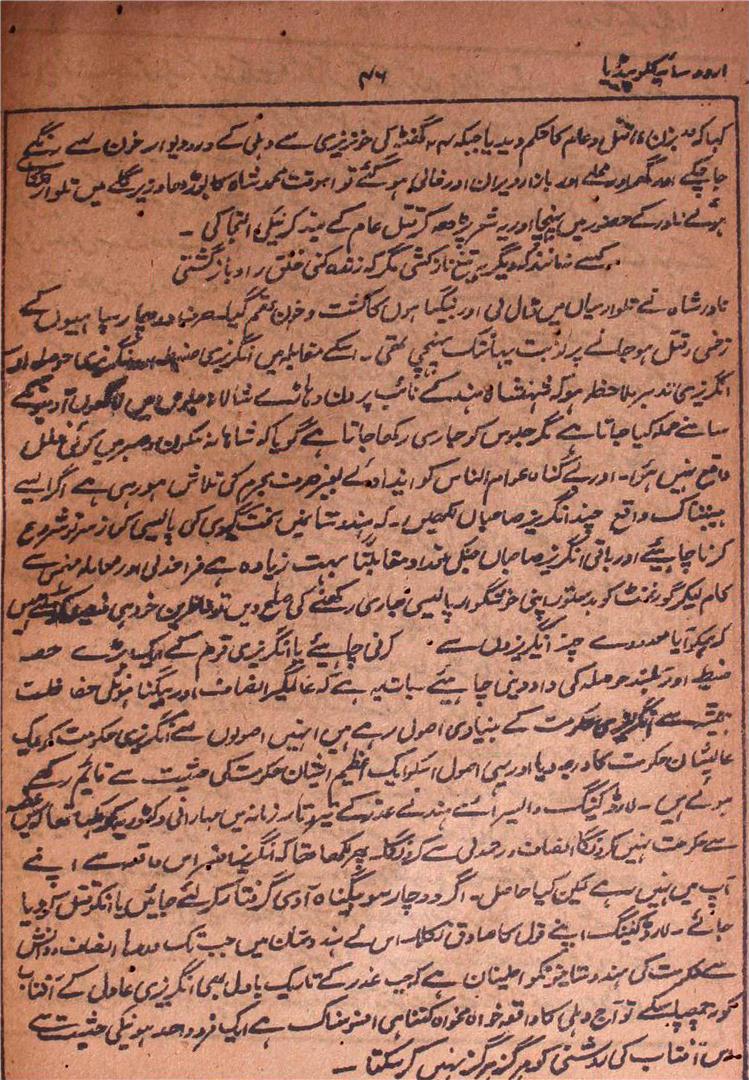 اردو سائیکلوپیڈیا
۴۶
کہا کہ "بزن" قتل عام کا حکم دیدیا جبکہ گھنٹہ کی خونریزی سے دہلی کے در و دیوار خون سے رنگے
جا چکے اور گھر اور محلے اور بازار ویران اور خالی ہو گئے تو اسوقت محمد شاہ کا بوڑھا وزیر گلے میں تلوار
ہوئے نادر کے حضور میں پہنچا اور یہ شعر پڑھ کر قتل عام کے بند کرنیکی التجا کی ۔
کسے نماند کہ دیگر بہ تیغ ناز کشی مگر کہ زندہ کنی خلق را و باز کشتی
نادر شاہ نے تلوار میاں میں ڈال لی اور بیگناہوں کا کشت و خون تھم گیا۔ صرف دو چار سپاہیوں کے
زخمی و قتل ہو جانے پر نوبت یہانتک پہنچی تھی ۔ اسکے مقابلہ میں انگریزی انگریزی حوصلہ اور
انگریزی تدبر ملاحظہ ہو کہ شہنشاہ ہند کے نائب پر دن دہاڑے شاہانہ جلوس میں لاکھوں آدمیوں کے
سامنے حملہ کیا جاتا ہے مگر جلوس کو جاری رکھا جاتا ہے گویا کہ شاہانہ سکون و صبر میں کوئی خلل
واقع نہیں ہوا۔ اور بے گناہ عوام الناس کو ایذا دئے بغیر صرف مجرم کی تلاش ہو رہی ہے اگر ایسے
ہیبتناک واقع چند انگریز صاحبان لکھیں ۔ کہ ہندوستانمیں سخت گیری کی پالیسی از سر نو شروع
کرنا چاہیئے اور باقی انگریز صاحبان جنکی تعداد مقابلتاً بہت زیادہ ہے فراخدلی اور معاملہ فہمی سے
کام لیکر گورنمنٹ کو بدستور اپنی خوشگوار پالیسی جاری رکھنے کی صلاح دیں تو ناظرین خود ہی فیصلہ
کہ ہمکو آیا معدودے چند انگریزوں سے کرنی چاہیئے یا انگریزی قوم کے ایک بڑے حصہ
ضبط اور بلند حوصلہ کی داد دینی چاہیئے بات یہ ہے کہ عالمگیر انصاف اور بیگناہونکی حفاظت
ہمیشہ سے انگریزی حکومت کے بنیادی اصول رہے ہیں انہیں اصولوں نے انگریزی حکومت کو ایک
عالیشان حکومت کا درجہ دیا اور یہی اصول اسکو ایک عظیم الشان حکومت کی حیثیت سے قایم رکھے
ہوئے ہیں ۔ لارڈ کیننگ وائسرائے ہند نے غدر کے تیرہ و تار زمانہ میں مہارانی وکٹوریہ کو لکھا تھا کہ میں غصہ
سے حکومت نہیں کرونگا انصاف و رحمدلی سے کرونگا۔ پھر لکھا تھا کہ انگریز اس واقعہ سے اپنے
آپ میں نہیں رہے لیکن کیا حاصل ۔ اگر دو چار سو بیگناہ آدمی گرفتار کر لئے جائیں یا انکو قتل کر دیا
جائے ۔ لارڈ کیننگ اپنے قول کا صادق نکلا۔ اس نے ہندوستان میں جب تک رہا انصاف و دانش
سے حکومت کی ہندوستانیونکو اطمینان ہے کہ جب غدر کے تاریک بادل بھی انگریزی عادل کے آفتاب
کو نہ چھپا سکے تو آج دہلی کا واقعہ خواہ نخواہ کتنا ہی افسوسناک ہے ایک فرد واحد ہونیکی حیثیت سے
اس آفتاب کی روشنی کو ہرگز ہرگز نہیں کر سکتا ۔